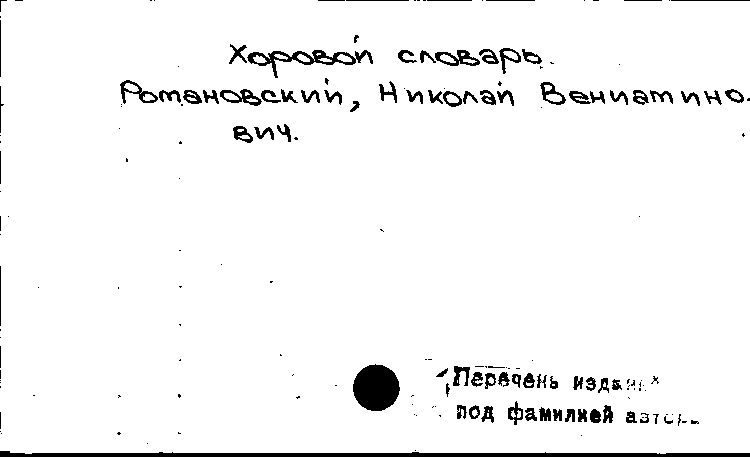 Хоровой словарь.
Романовский, Николай Вениамино-
вич.
Перечень изданий
под фамилией автора